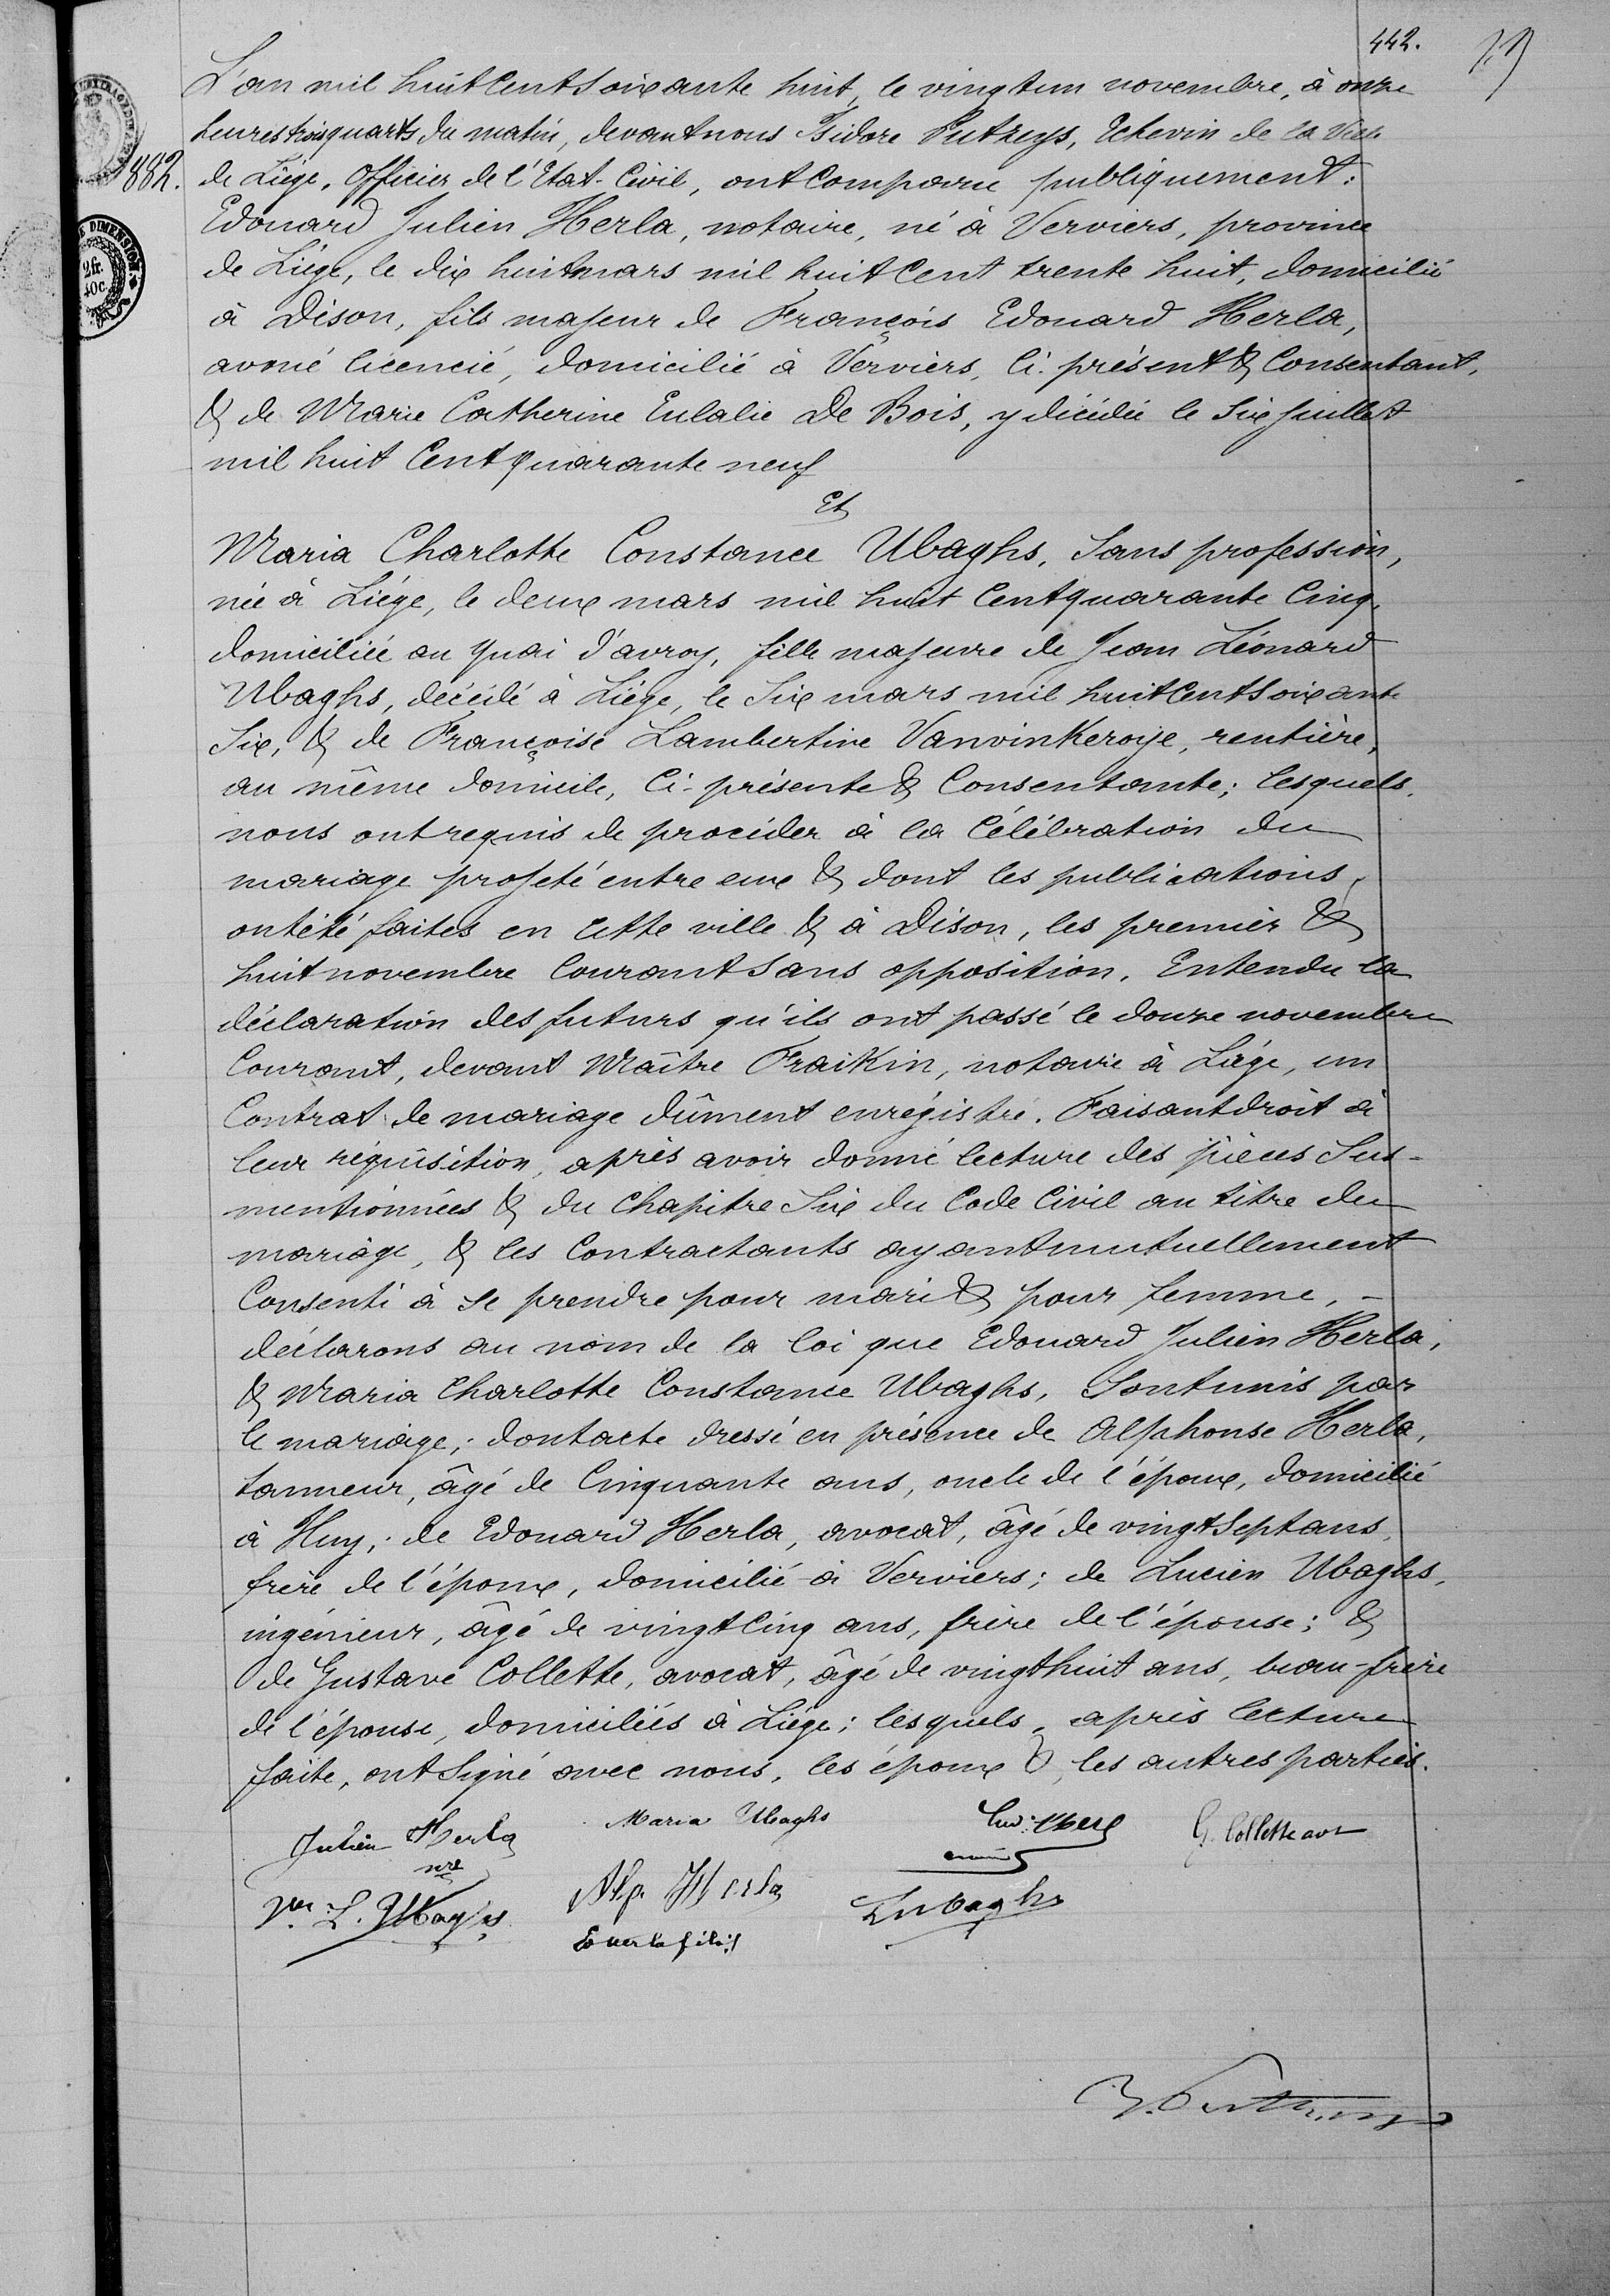 442.
L'an mil huit Cent Soixante huit, le vingt un novembre, à onze
heures trois quarts du matin, devant nous Isidore Putzeys, Echevin de la Ville
882.
de Liége, Officier de l'Etat-Civil, ont Comparu publiquement:
Edouard Julien Herla, notaire, né à Verviers, province
de Liége, le dix huit mars mil huit Cent trente huit, domicilié
à Dison, fils majeur de François Edouard Herla,
avoué licencié, domicilié à Verviers, Ci-présent & Consentant,
& de Marie Catherine Eulalie De Bois, y décédée le Six juillet
mil huit Cent quarante neuf
Et
Maria Charlotte Constance Ubaghs, Sans profession,
née à Liége, le deux mars mil huit Cent quarante Cinq,
domiciliée au quai d'avroy, fille majeure de Jean Léonard
Ubaghs, décédé à Liége, le Six mars mil huit Cent Soixante
Six, & de Françoise Lambertine Vanvinkeroye, rentière,
au même domicile, Ci-présente & Consentante; lesquels
nous ont requis de procéder à la Célébration du
mariage projeté entre eux & dont les publications
ont été faites en Cette ville & à Dison, les premier &
huit novembre Courant Sans opposition. Entendu la
déclaration des futurs qu'ils ont passé le douze novembre
Courant, devant Maître Fraikin, notaire à Liége, un
Contrat de mariage dûment enrégistré. Faisant droit à
leur réquisition, après avoir donné lecture des pièces Sus-
mentionnées & du Chapitre Six du Code Civil au titre du
mariage, & les Contractants ayant mutuellement
Consenti à se prendre pour mari & pour femme, -
déclarons au nom de la loi que Edouard Julien Herla,
& Maria Charlotte Constance Ubaghs, Sont unis par
le mariage; dont acte dressé en présence de Alphonse Herla,
tanneur, âgé de Cinquante ans, oncle de l'époux, domicilié
à Huy; de Edouard Herla, avocat, âgé de vingt Sept ans,
frère de l'époux, domicilié à Verviers; de Lucien Ubaghs,
ingénieur, âgé de vingt Cinq ans, frère de l'épouse; &
de Gustave Collette, avocat, âgé de vingt huit ans, beau-frère
de l'épouse, domiciliés à Liége; lesquels, après lecture
faite, ont Signé avec nous, les époux & les autres parties.
Julien Herla
nre
Maria Ubaghs
G. Collette avt
Ve L. Ubaghs
Alp Herla
L Ubaghs
E Herla fils
DIMENSION
2 fr.
40c